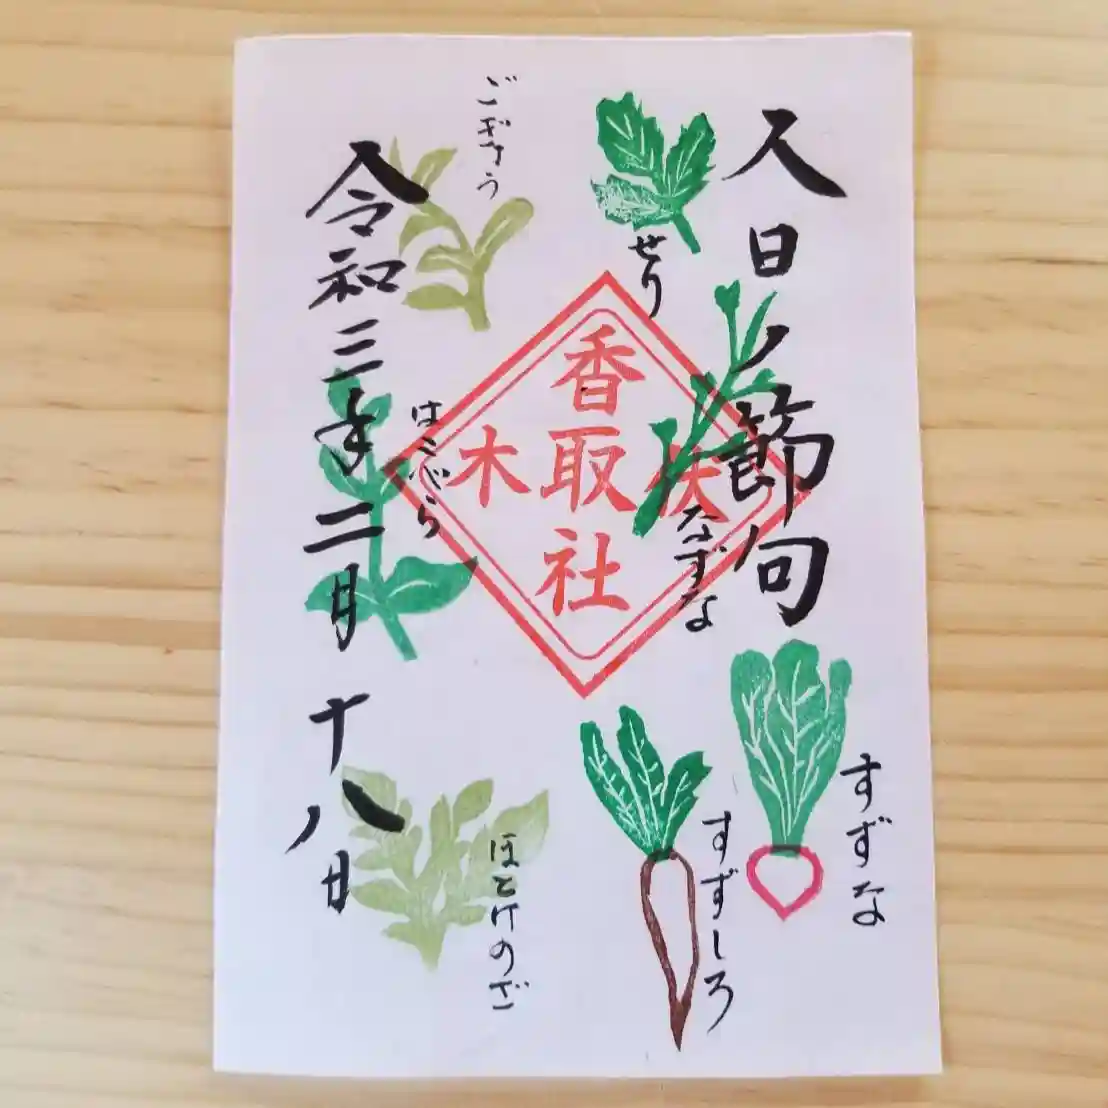 人日ノ節句
せり
なずな
ごぎょう
はこべら
ほとけのざ
すずな
すずしろ
香取社
木
令和三年二月十八日